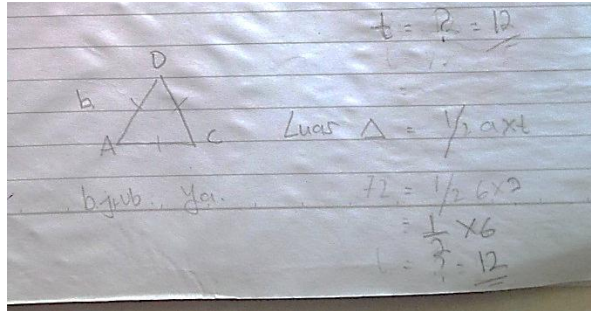 t = ? = 12
D
b
A C
Luas △ = 1/2 a x t
b. Ya.
72 = 1/2 6 x ?
= 1/2 x 6
= ? = 12